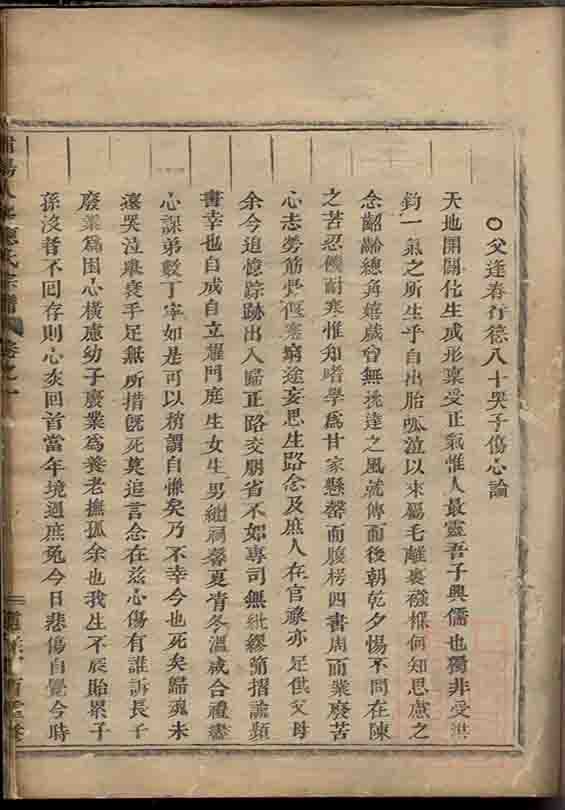 ○父逢春行德八十哭子傷心論
天地開闢化生成形稟受正氣惟人最靈吾子興儒也獨非受洪
鈞一氣之所生乎自出胎呱泣以來屬毛離裏襁褓何知思慮之
念齠齡總角嬉戲曾無挑達之風就傅而後朝乾夕惕不問在陳
之苦忍饑耐寒惟知嗜學為甘家懸罄而腹枵四書周而業廢苦
心志勞筋骨偃蹇窮途妄思生路念及庶人在官祿亦足供父母
余今追憶踪跡出入歸正路交朋省不如專司無紕繆簡摺諭類
書幸也自成自立耀門庭生女生男繼祠馨夏凊冬溫咸合禮盡
心課弟數丁寧如是可以稍謂自慊矣乃不幸今也死矣歸魂未
遠哭泣舉哀手足無所措既死莫追言念在茲心傷有誰訴長子
廢業為困心橫慮幼子廢業為養老撫孤余也我生不辰貽累子
孫沒者不回存則心灰回首當年境遇庶免今日悲傷自覺今時
氏宗譜 卷之一